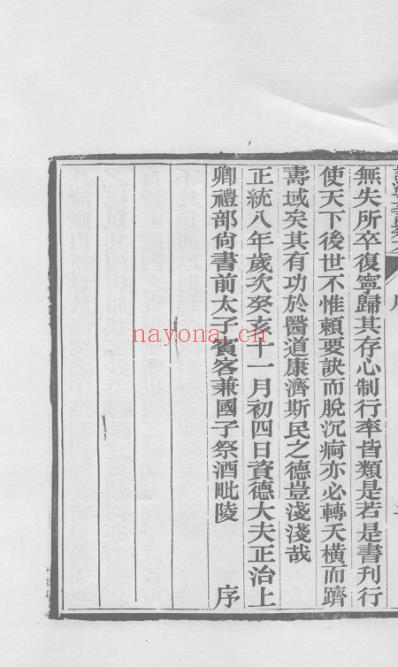 無失所卒復寧歸其存心制行率皆類是若是書刊行
使天下後世不惟賴要訣而脫沉痾亦必轉夭橫而躋
壽域矣其有功於醫道康濟斯民之德豈淺淺哉
正統八年歲次癸亥十一月初四日資德大夫正治上
卿禮部尚書前太子賓客兼國子祭酒毗陵 序
nayona.cn